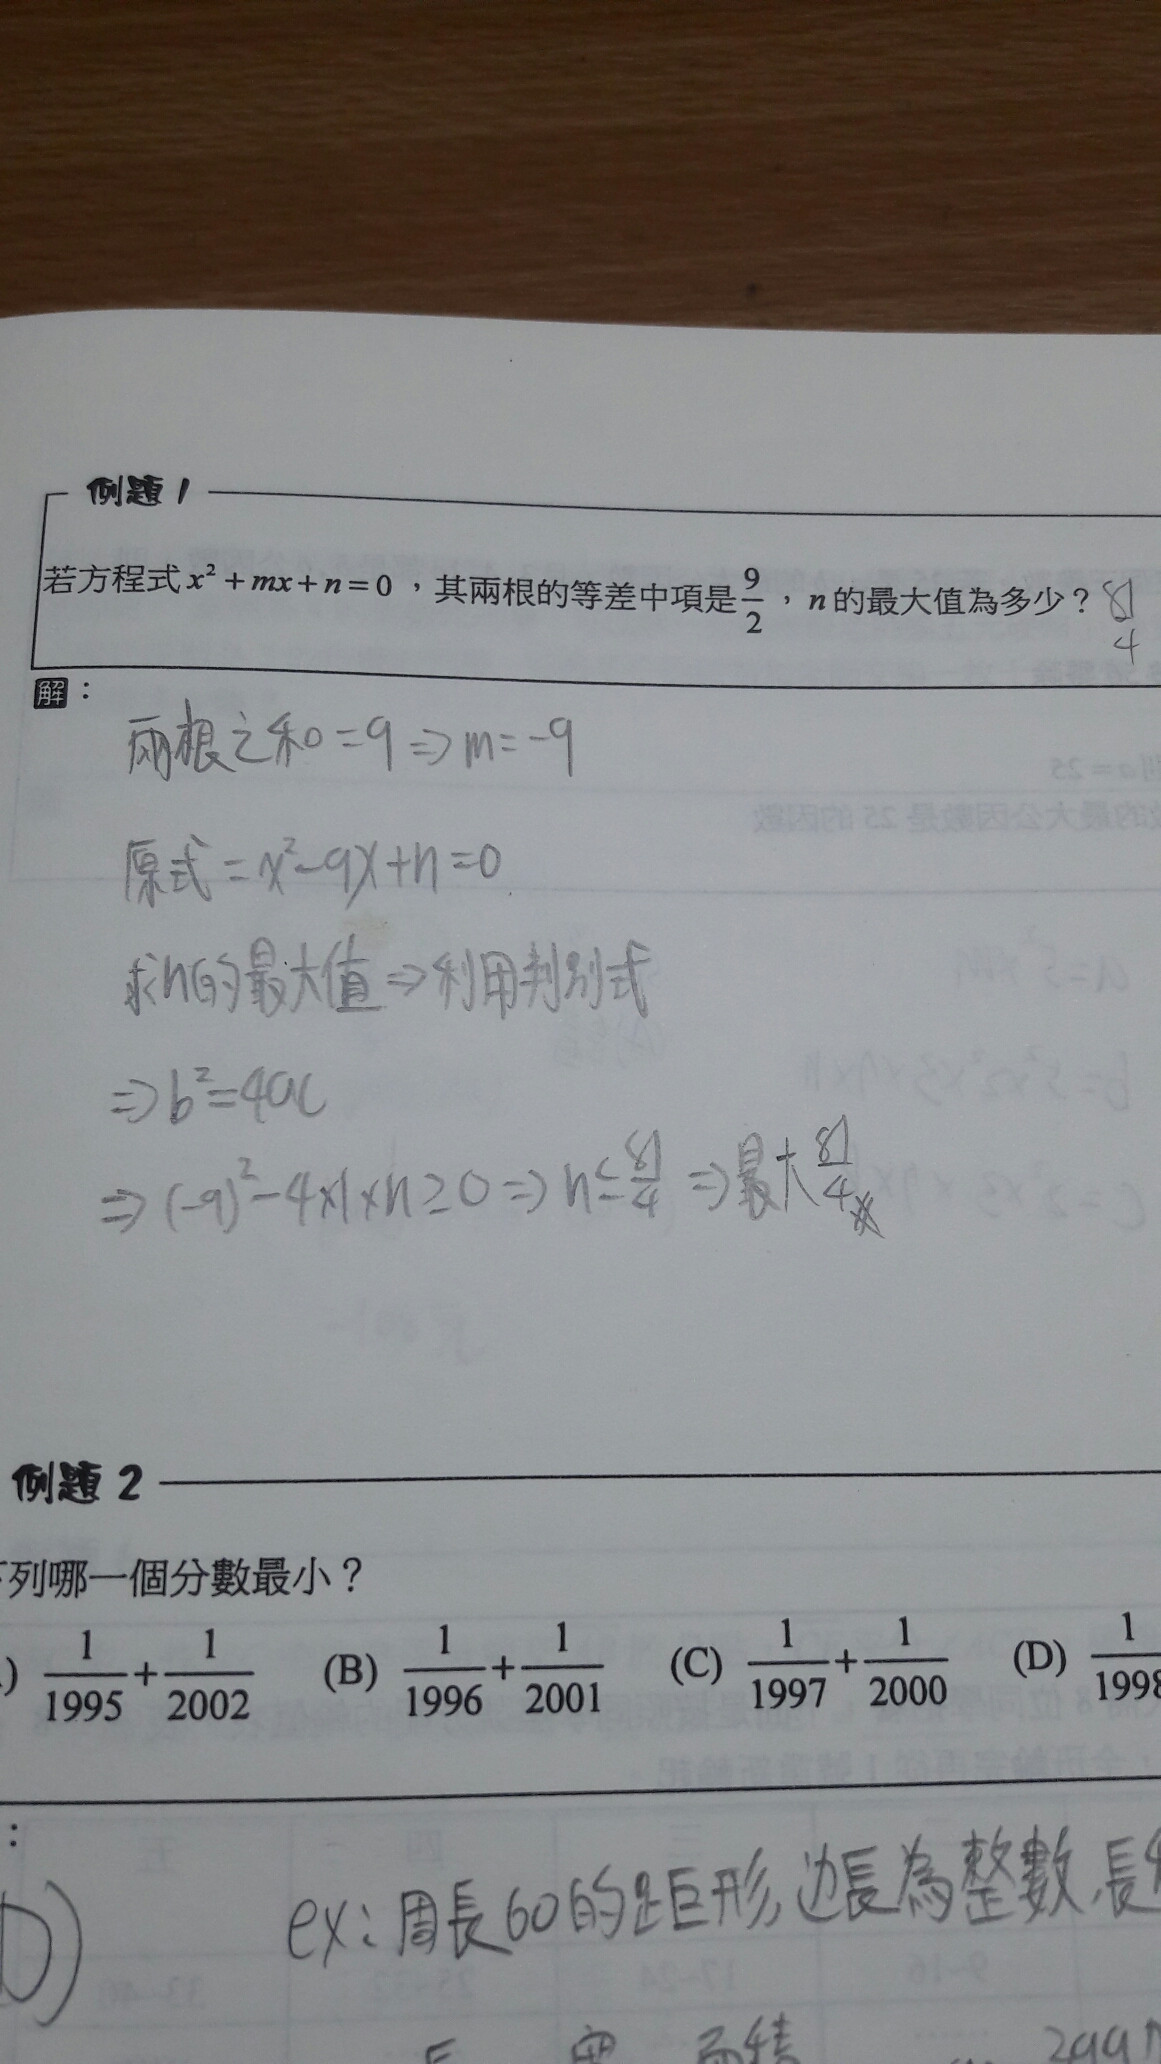 例題 1
若方程式 x² + mx + n = 0，其兩根的等差中項是 9/2，n 的最大值為多少？ 81/4
解：
兩根之和=9⇒m=-9
原式=x²-9x+n=0
求n的最大值⇒利用判別式
⇒b²=4ac
⇒(-9)²-4×1×n≥0⇒n≤81/4⇒最大81/4
例題 2
下列哪一個分數最小？
) 1/1995 + 1/2002 (B) 1/1996 + 1/2001 (C) 1/1997 + 1/2000 (D) 1/1998
：
D)
ex:周長60的距形,边長為整數,長
面積